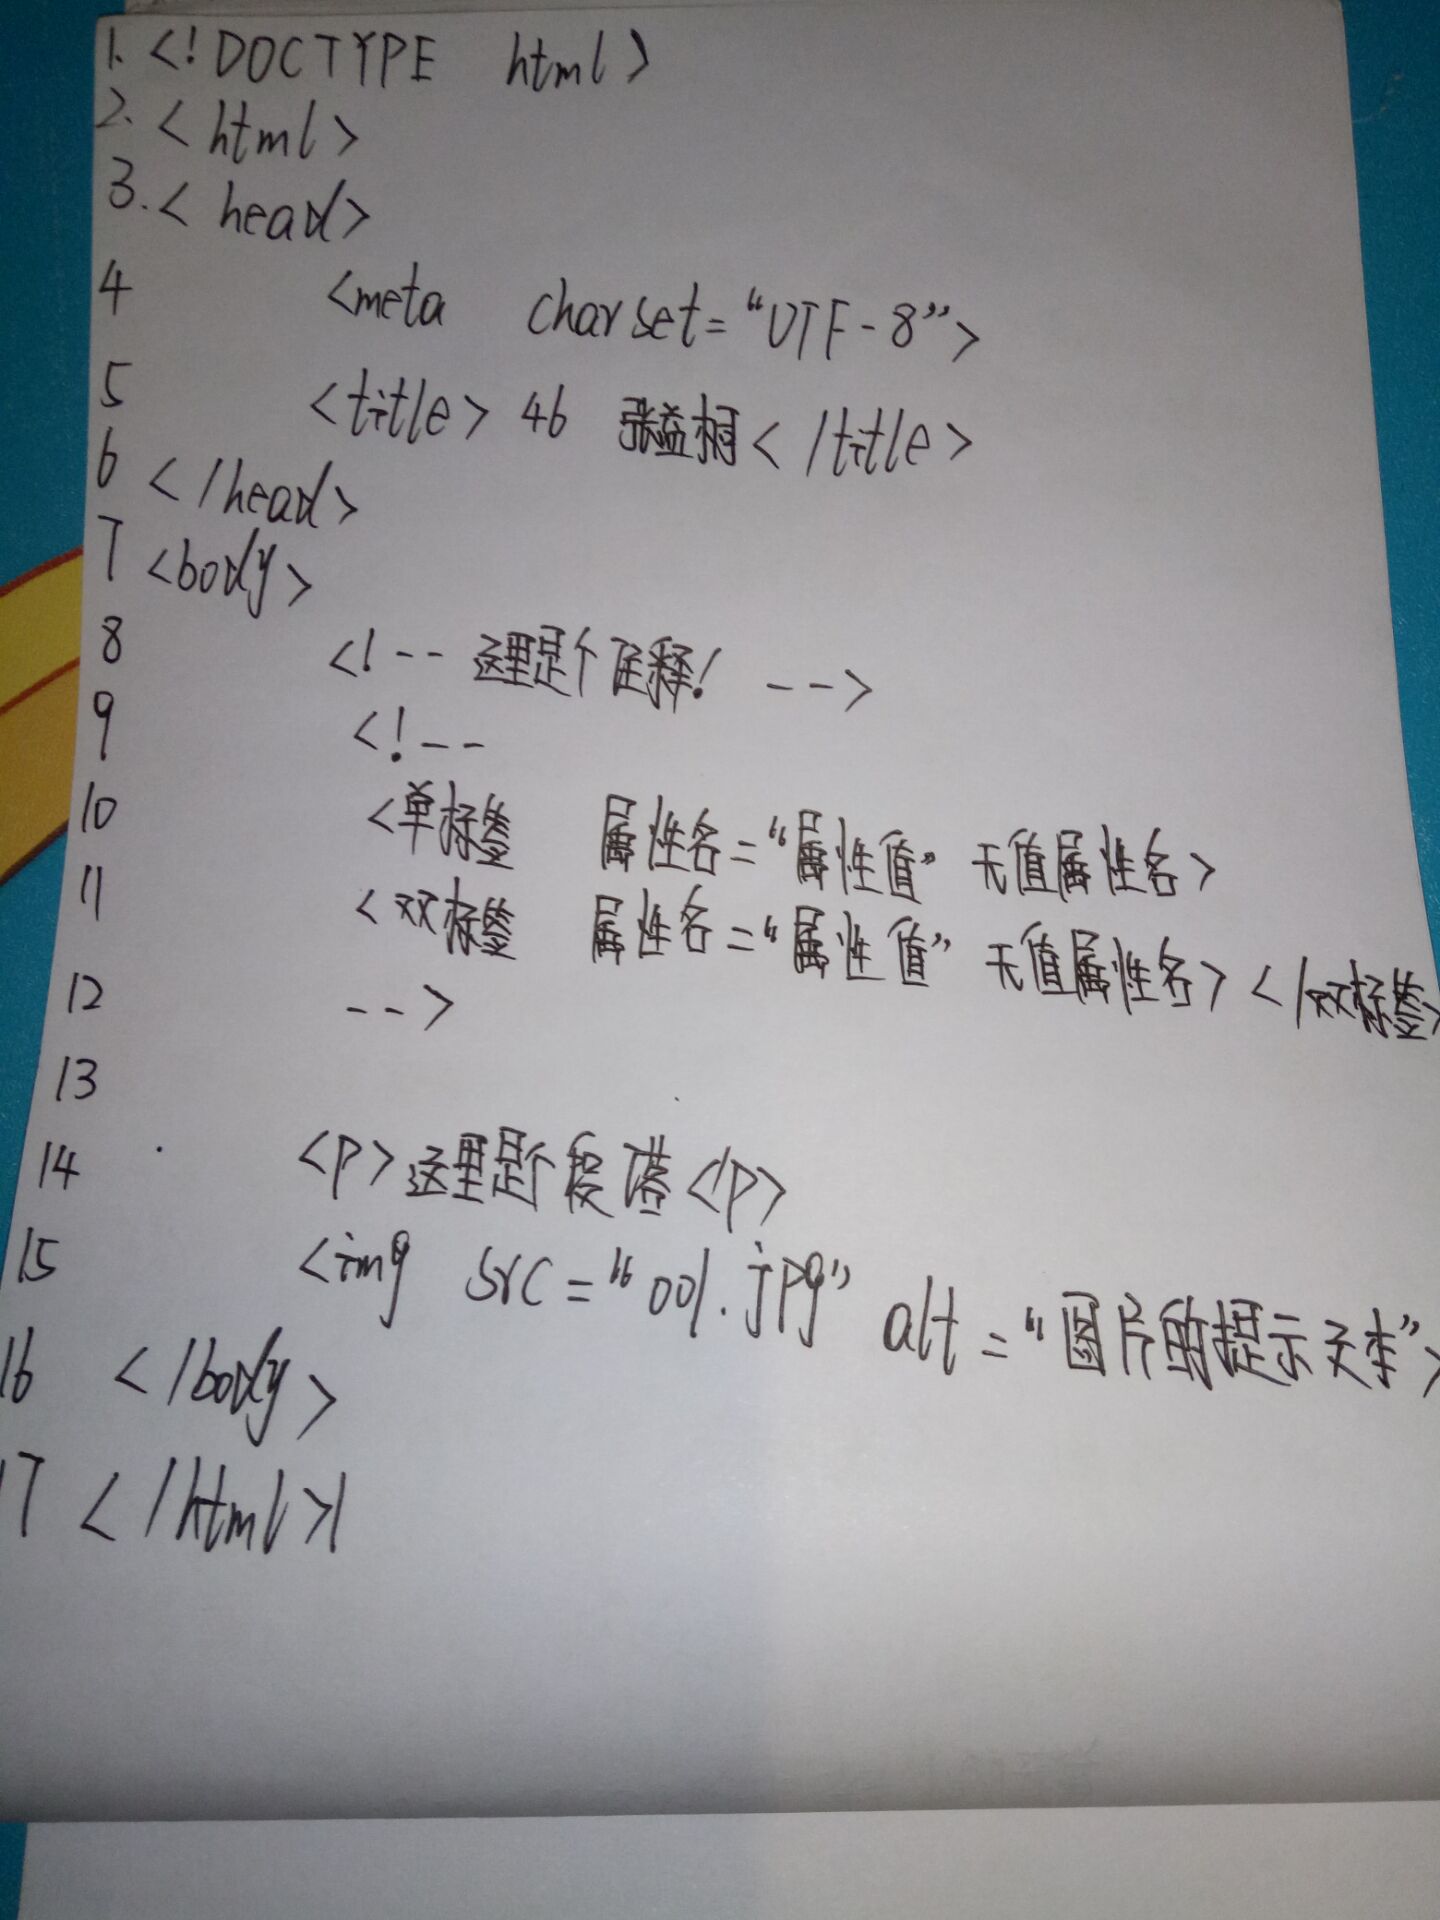 1. <!DOCTYPE html>
2. <html>
3. <head>
4 <meta charset="UTF-8">
5 <title> 46 张益桐</title>
6 </head>
7 <body>
8 <!-- 这里是个注释! -->
9 <!--
10 <单标签 属性名="属性值" 无值属性名>
11 <双标签 属性名="属性值" 无值属性名></双标签>
12 -->
13
14 <p>这里是个段落</p>
15 <img src="001.jpg" alt="图片的提示文本">
16 </body>
17 </html>